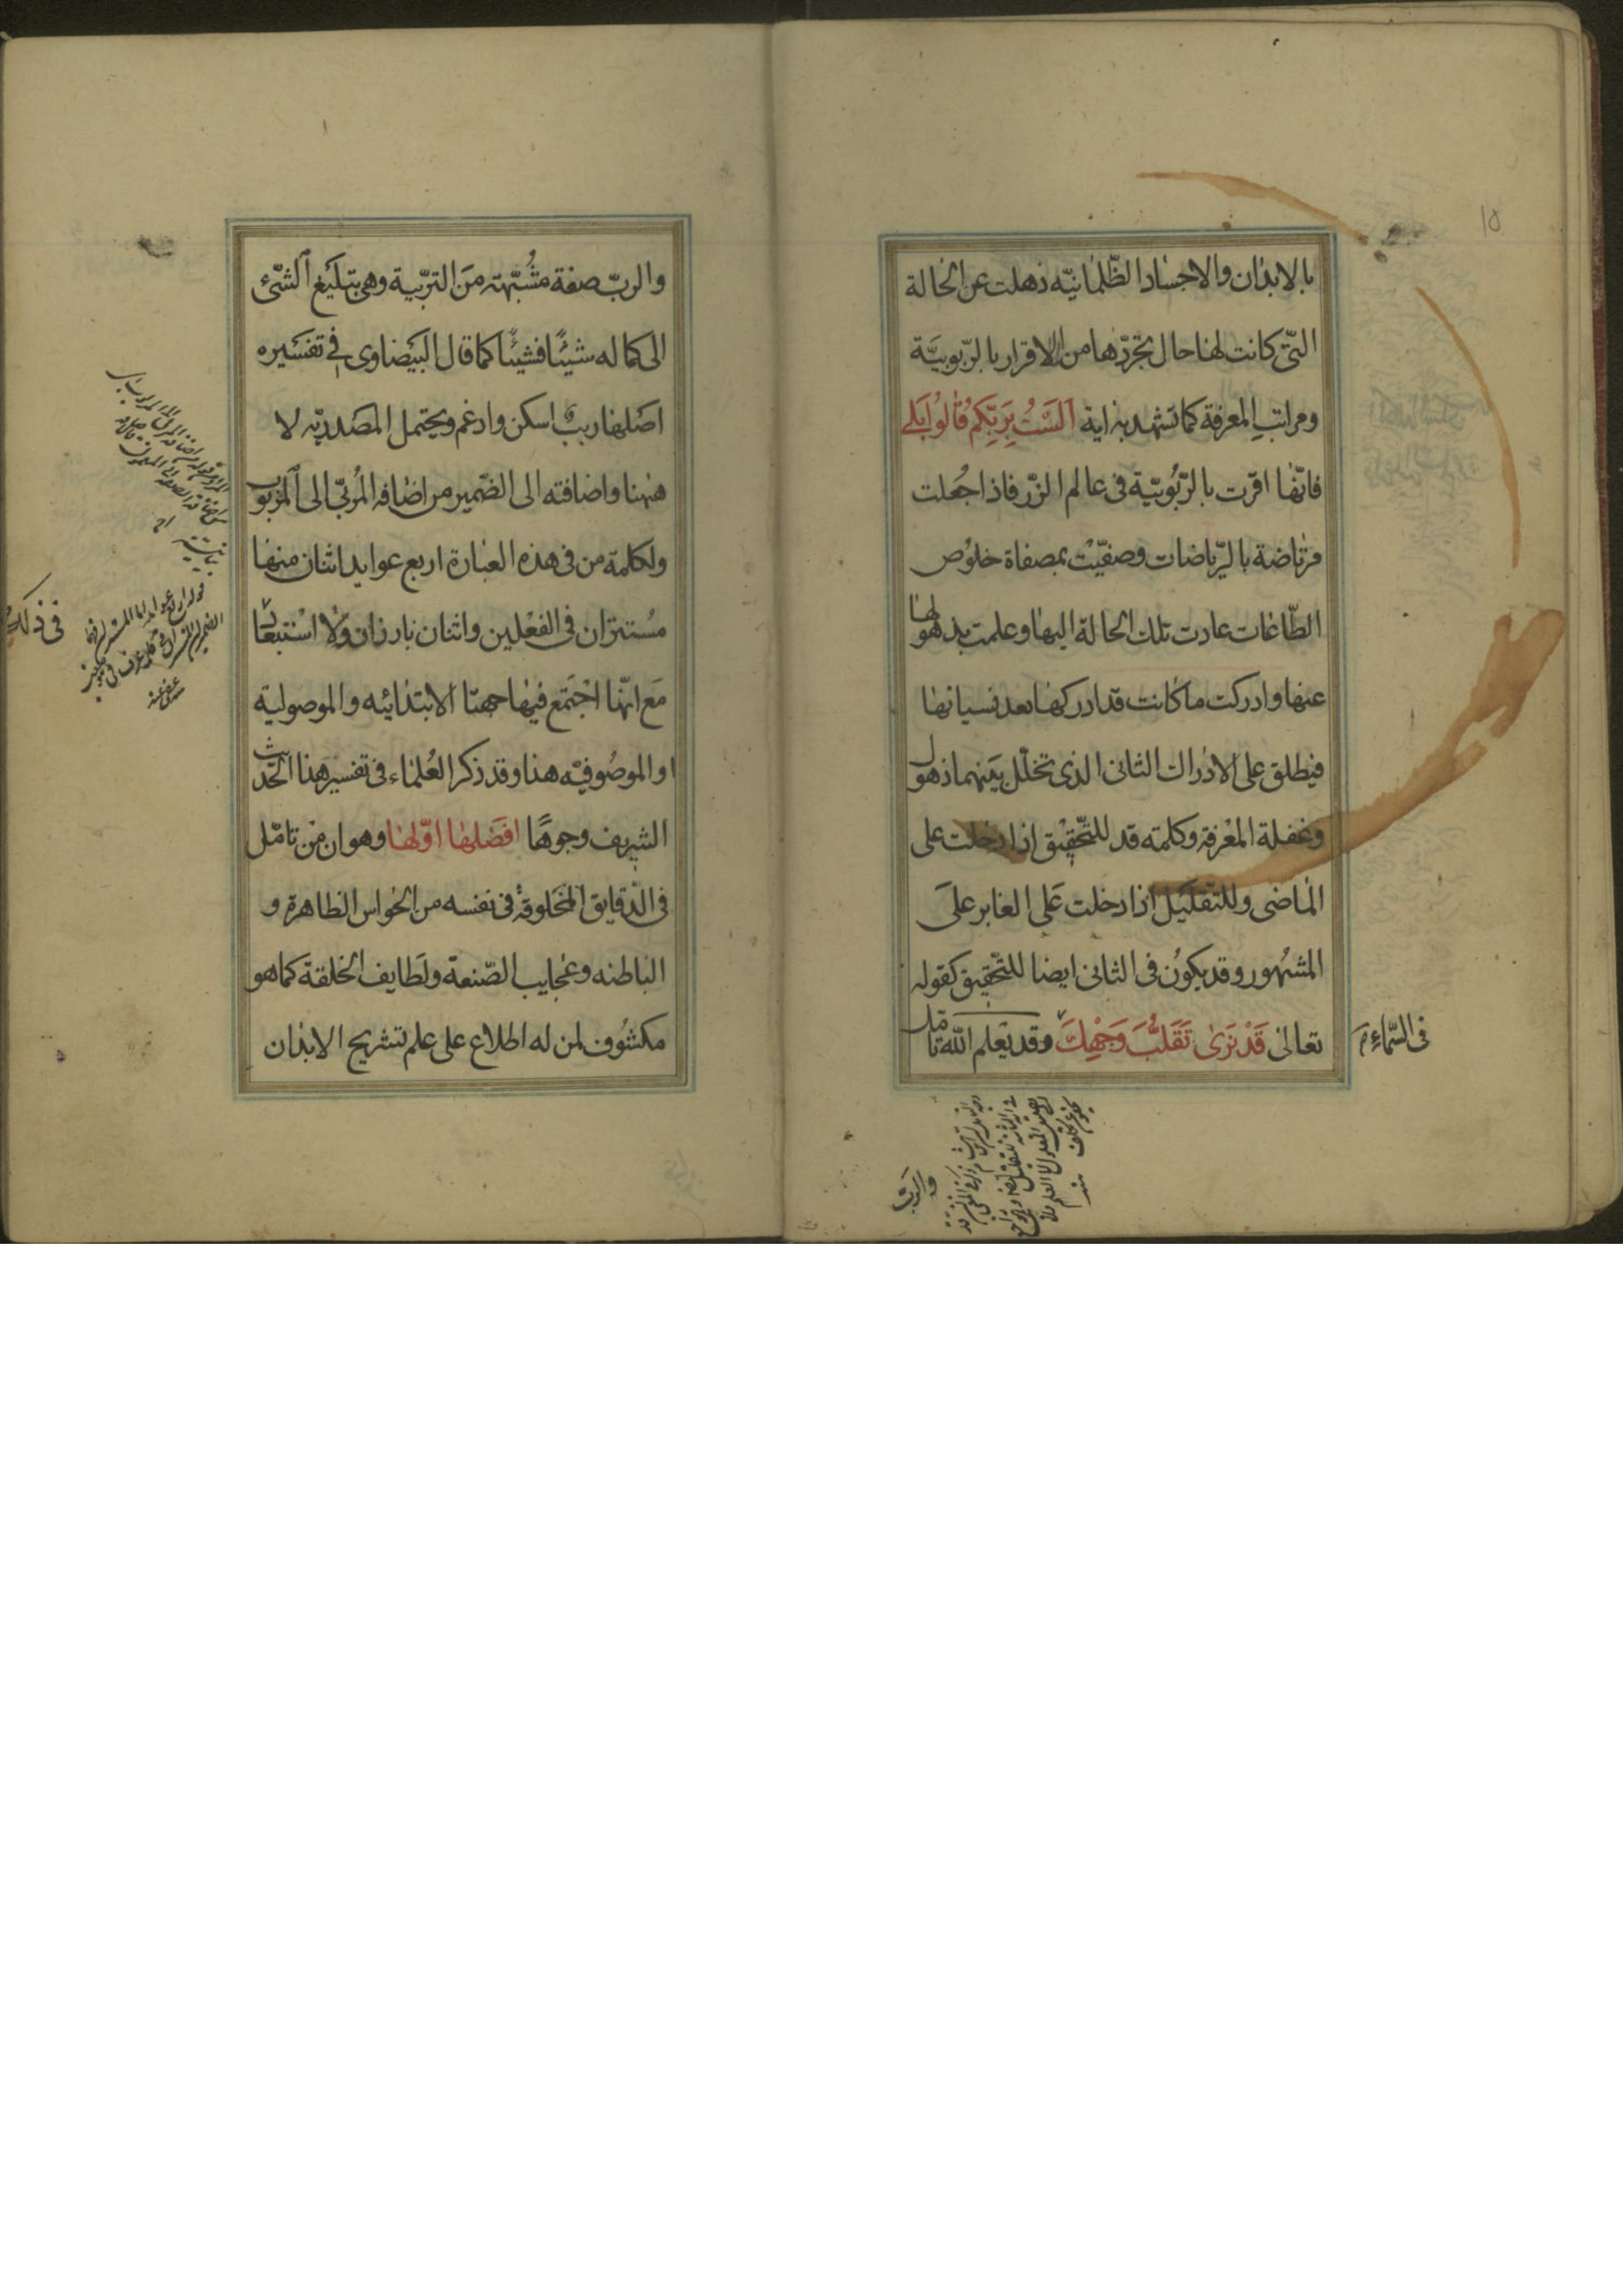 بالابدان والاجساد الظّلمانيّه ذهلت عن الحالة
التّى كانت لها حال تجرّدها من الاقرار بالربّوبيّة
ومراتب المعرفة كما تشهد به اية اَلَسْتُ بِرَبِّكُم قٰالُوُا بَلى
فانّها اقرّت بالرّبُوبيّة فى عالم الزّر فاذا جُعلت
مرتاضة بالرّياضات وصفيّت بمصفاة خلوُص
الطّاعات عادت تلك الحالة اليها وعلمت بذهولها
عنها وادركت ما كانت قد ادركها بعد نسيانها
فيطلق على الادراك الثانى الذى تخلّل بينهما ذهول
وغفلة المعْرفة وكلمته قد للتّحقيْق اذا دخلت على
الماضى وللتّقليل اذا دخلت عَلى الغابر علَى
المشهُور وقد يكوُن فى الثانى ايضا للتّحقيق كقوله
تعالىٰ قَدْ نَرىٰ تَقَلُّبَ وَجْهِكَ وقد يَعْلم اللّه تامّل
فى السّماءِ
والربّ
والربّ صفة مشُبّهة منَ التربّية وهى تبليَغ الشّئ
الى كماله شيئًا فشيئًا كما قال البَيضاوى فى تفسَيره
اصَلها ربب اسكن وادغم ويحتمل المصَدريّه لا
ههنا واضافته الى الضّمير من اضافه المُربّى الى المرْبُوب
ولكلمة من فى هذه العبارة اربع عوايد اثنان منها
مسُتتران فى الفعْلين واثنان بارزان ولا اسْتبعٰاد
فى ذلك
مَع انّها اجْتَمع فيها جهتا الابتدائيه والموصولية
او الموصُوفيّه هنا وقد ذكر العُلماء فى تفسير هذا الحَديث
الشريف وجوهًا افَضلها اوّلها وهو ان مَن تامّل
فى الدّقايق المخَلوقهْ فى نفسه من الحَواس الظاهرة و
الباطنه وعجايب الصّنعة ولَطايف الخلقة كما هو
مكشوُف لمن له اطلاع على علم تشريح الابدان